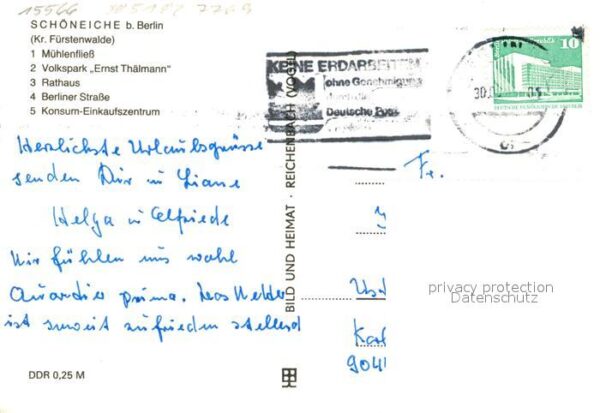 15566
SCHÖNEICHE b. Berlin
(Kr. Fürstenwalde)
1 Mühlenfließ
2 Volkspark „Ernst Thälmann"
3 Rathaus
4 Berliner Straße
5 Konsum-Einkaufszentrum
KEINE ERDARBEITEN
ohne Genehmigung
Deutsche Post
10
Herzlichste Urlaubsgrüsse
senden Dir u Liane
Helga u Elfriede
Wir fühlen uns wohl
Quartier prima. Das Wetter
ist soweit zufrieden stellend
Fr.
9041
BILD UND HEIMAT · REICHENBACH (VOGTL)
DDR 0,25 M
privacy protection
Datenschutz